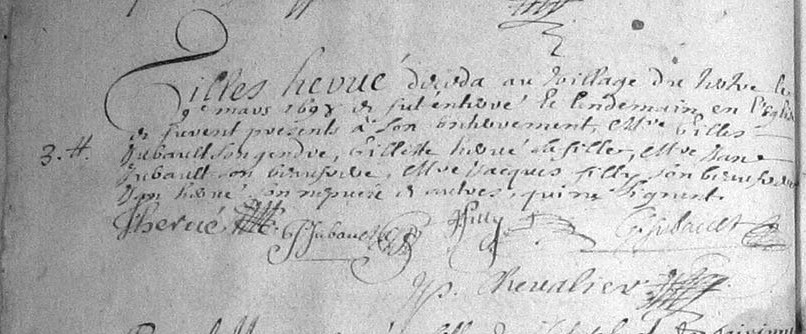 Gilles hervé décéda au village du
9e mars 1698 et fut enterré le lendemain en l'église
et furent presents a son enterrement, Mre Gilles
3.tt. Jubault son gendre, Gillette hervé sa fille, Mre Jan
Jubault son beaufrere, Mre Jacques filly son beaufrere
Jan hervé son et autres, qui ne signent.
J hervé G. Jubault filly G. Jubault
p. Chevalier